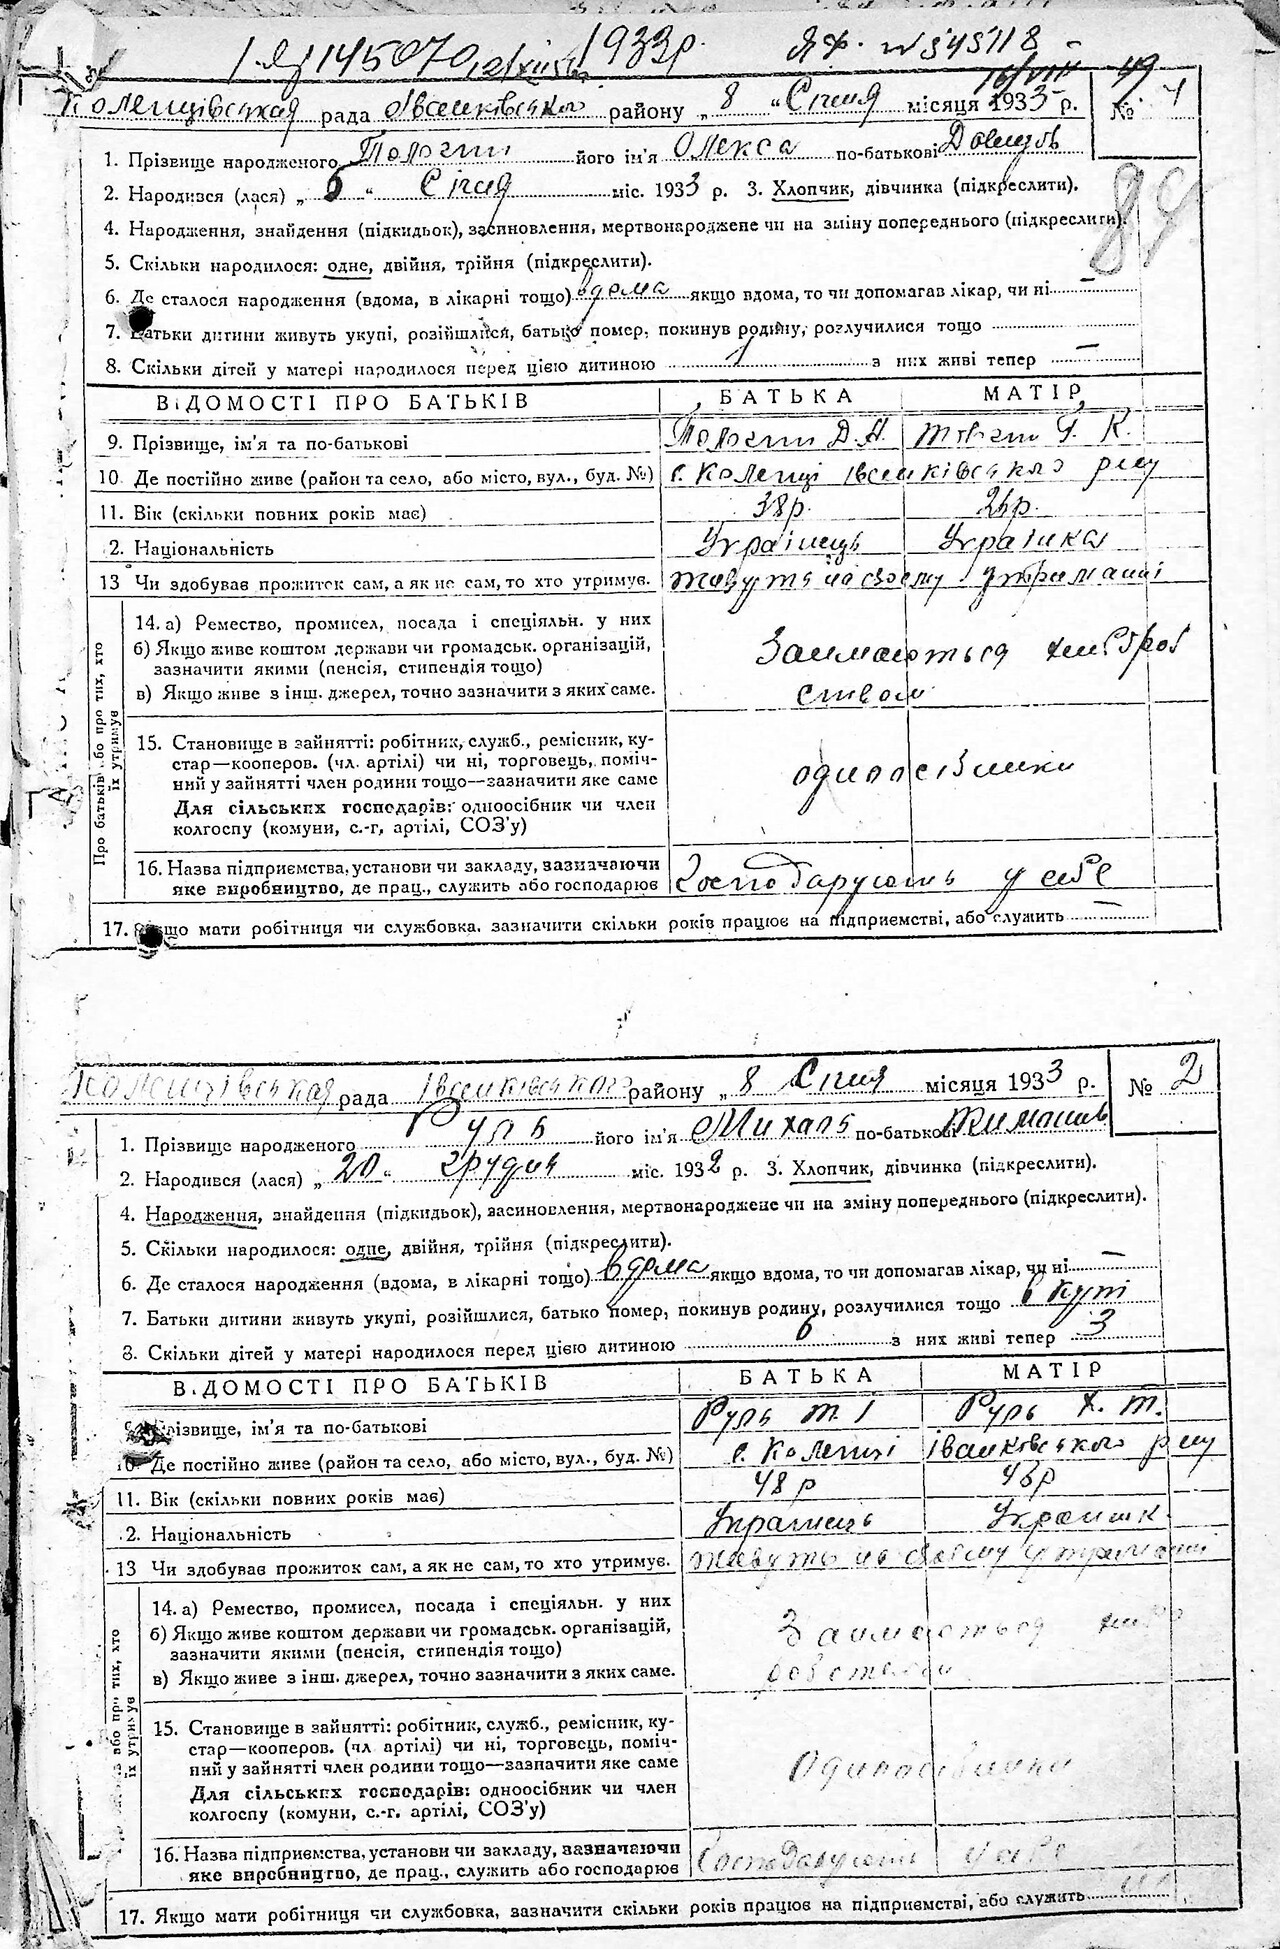 1933р. ЯФ. № 545118
Коленцівская рада Іванківського району „ 8 “ Січня місяця 1933 р. № 1
49
89
1. Прізвище народженого його ім'я Олекса по-батькові
2. Народився (лася) „ 6 “ Січня міс. 1933 р. 3. Хлопчик, дівчинка (підкреслити).
4. Народження, знайдення (підкидьок), засиновлення, мертвонароджене чи на зміну попереднього (підкреслити).
5. Скільки народилося: одне, двійня, трійня (підкреслити).
6. Де сталося народження (вдома, в лікарні тощо) вдома якщо вдома, то чи допомагав лікар, чи ні —
7. Батьки дитини живуть укупі, розійшлися, батько помер, покинув родину, розлучилися тощо
8. Скільки дітей у матері народилося перед цією дитиною 1 з них живі тепер —
ВІДОМОСТІ ПРО БАТЬКІВ БАТЬКА МАТІР
9. Прізвище, ім'я та по-батькові Д. Н. К.
10 Де постійно живе (район та село, або місто, вул., буд. №) с. Коленці Іванківського р-ну
11. Вік (скільки повних років має) 38р.
2. Національність Українець Українка
13 Чи здобував прожиток сам, а як не сам, то хто утримує. живуть на своєму утриманні
Про батьків або про тих, хто
їх утримує
14. а) Ремество, промисел, посада і спеціяльн. у них
б) Якщо живе коштом держави чи громадськ. організацій,
зазначити якими (пенсія, стипендія тощо)
в) Якщо живе з інш. джерел, точно зазначити з яких саме.
Займаються хлібороб
ством
15. Становище в зайнятті: робітник, служб., ремісник, ку-
стар—кооперов. (чл. артілі) чи ні, торговець, поміч-
ний у зайнятті член родини тощо—зазначити яке саме
Для сільських господарів: одноосібник чи член
колгоспу (комуни, с.-г. артілі, СОЗ'у)
одноосібники
16. Назва підприємства, установи чи закладу, зазначаючи
яке виробництво, де прац., служить або господарює Господарують у себе
17. Якщо мати робітниця чи службовка, зазначити скільки років працює на підприємстві, або служить —
Коленцівская рада Іванківського району „ 8 Січня місяця 1933 р. № 2
1. Прізвище народженого Руль його ім'я Михаль по-батькові
2. Народився (лася) „ 20 “ Грудня міс. 1932 р. 3. Хлопчик, дівчинка (підкреслити).
4. Народження, знайдення (підкидьок), засиновлення, мертвонароджене чи на зміну попереднього (підкреслити).
5. Скільки народилося: одне, двійня, трійня (підкреслити).
6. Де сталося народження (вдома, в лікарні тощо) вдома якщо вдома, то чи допомагав лікар, чи ні —
7. Батьки дитини живуть укупі, розійшлися, батько помер, покинув родину, розлучилися тощо в купі
8. Скільки дітей у матері народилося перед цією дитиною 6 з них живі тепер 3
ВІДОМОСТІ ПРО БАТЬКІВ БАТЬКА МАТІР
9. Прізвище, ім'я та по-батькові Руль Т. І Руль Х. Т.
10 Де постійно живе (район та село, або місто, вул., буд. №) с. Коленці Іванківського р-ну
11. Вік (скільки повних років має) 48р 43р
2. Національність Українець Українк
13 Чи здобував прожиток сам, а як не сам, то хто утримує. живуть на своєму утриманні
або про тих, хто
їх утримує
14. а) Ремество, промисел, посада і спеціяльн. у них
б) Якщо живе коштом держави чи громадськ. організацій,
зазначити якими (пенсія, стипендія тощо)
в) Якщо живе з інш. джерел, точно зазначити з яких саме.
Займаються хлібо
робством
15. Становище в зайнятті: робітник, служб., ремісник, ку-
стар—кооперов. (чл артілі) чи ні, торговець, поміч-
ний у зайнятті член родини тощо—зазначити яке саме
Для сільських господарів: одноосібник чи член
колгоспу (комуни, с.-г. артілі, СОЗ'у)
Одноосібники
16. Назва підприємства, установи чи закладу, зазначаючи
яке виробництво, де прац., служить або господарює Господарують у себе
17. Якщо мати робітниця чи службовка, зазначити скільки років працює на підприємстві, або служить